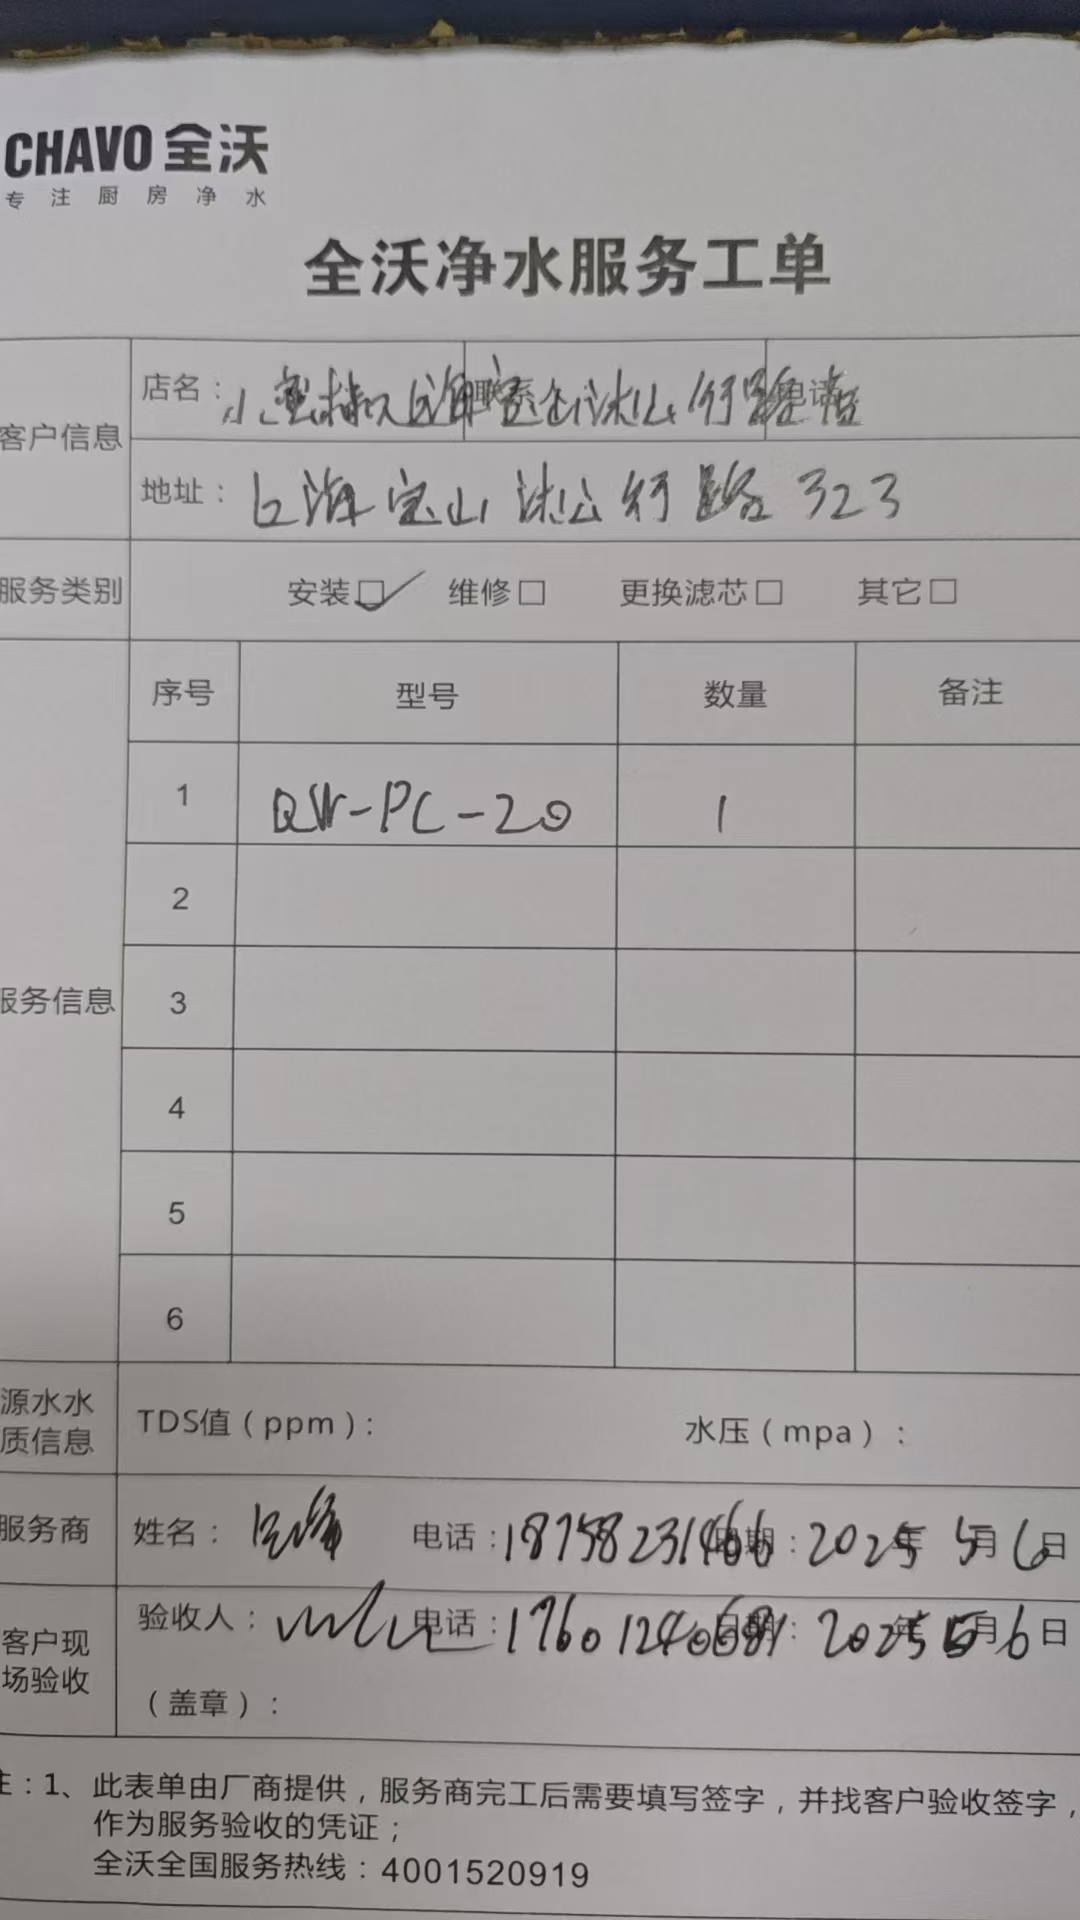 CHAVO 全沃
专注厨房净水
全沃净水服务工单
客户信息
店名：
地址：上海宝山淞行路323
服务类别 安装☑ 维修□ 更换滤芯□ 其它□
序号 型号 数量 备注
1 QW-PC-20 1
2
服务信息 3
4
5
6
源水水质信息 TDS值（ppm）： 水压（mpa）：
服务商 姓名： 电话：18758231466 日期：2025年5月6日
客户现场验收 验收人： 电话：17601240681 日期：2025年5月6日
（盖章）：
注：1、此表单由厂商提供，服务商完工后需要填写签字，并找客户验收签字，
作为服务验收的凭证；
全沃全国服务热线：4001520919